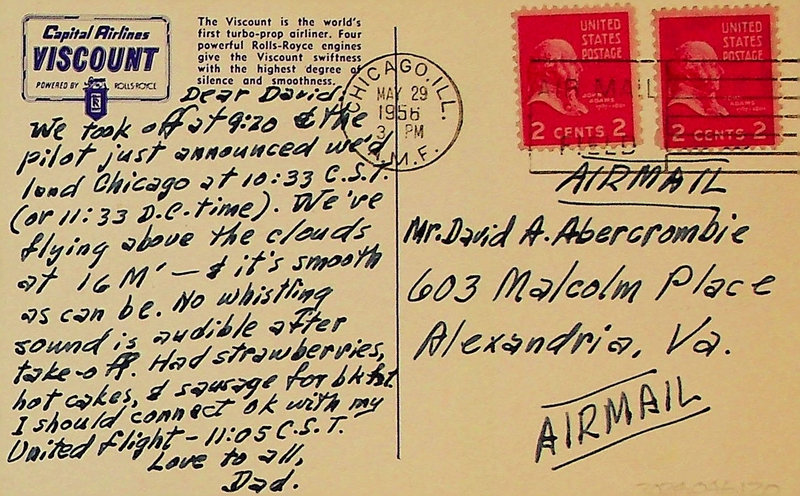 Capital Airlines
VISCOUNT
POWERED BY ROLLS-ROYCE
The Viscount is the world's
first turbo-prop airliner. Four
powerful Rolls-Royce engines
give the Viscount swiftness
with the highest degree of
silence and smoothness.
Dear David,
We took off at 9:20 & the
pilot just announced we'd
land Chicago at 10:33 C.S.T.
(or 11:33 D.C. time). We've
flying above the clouds
at 16 M' — & it's smooth
as can be. No whistling
sound is audible after
take-off. Had strawberries,
hot cakes, & sausage for bkfst
I should connect ok with my
United flight - 11:05 C.S.T.
Love to all,
Dad.
CHICAGO, ILL.
MAY 29
1956
3 PM
A.M.F.
UNITED
STATES
POSTAGE
JOHN
ADAMS
2 CENTS 2
UNITED
STATES
POSTAGE
ADAMS
2 CENTS 2
AIR MAIL
AIRMAIL
Mr. David A. Abercrombie
603 Malcolm Place
Alexandria, Va.
AIRMAIL